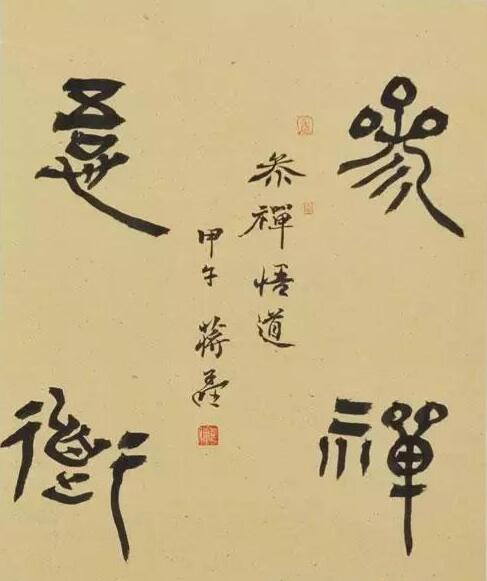 參禪
参禪悟道
甲午 蔣
悟道